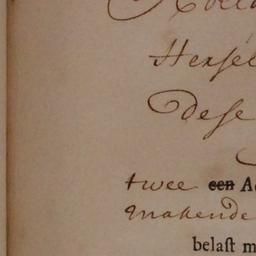 Roela
Hersel
Dese
twee een A
makende
belaſt m